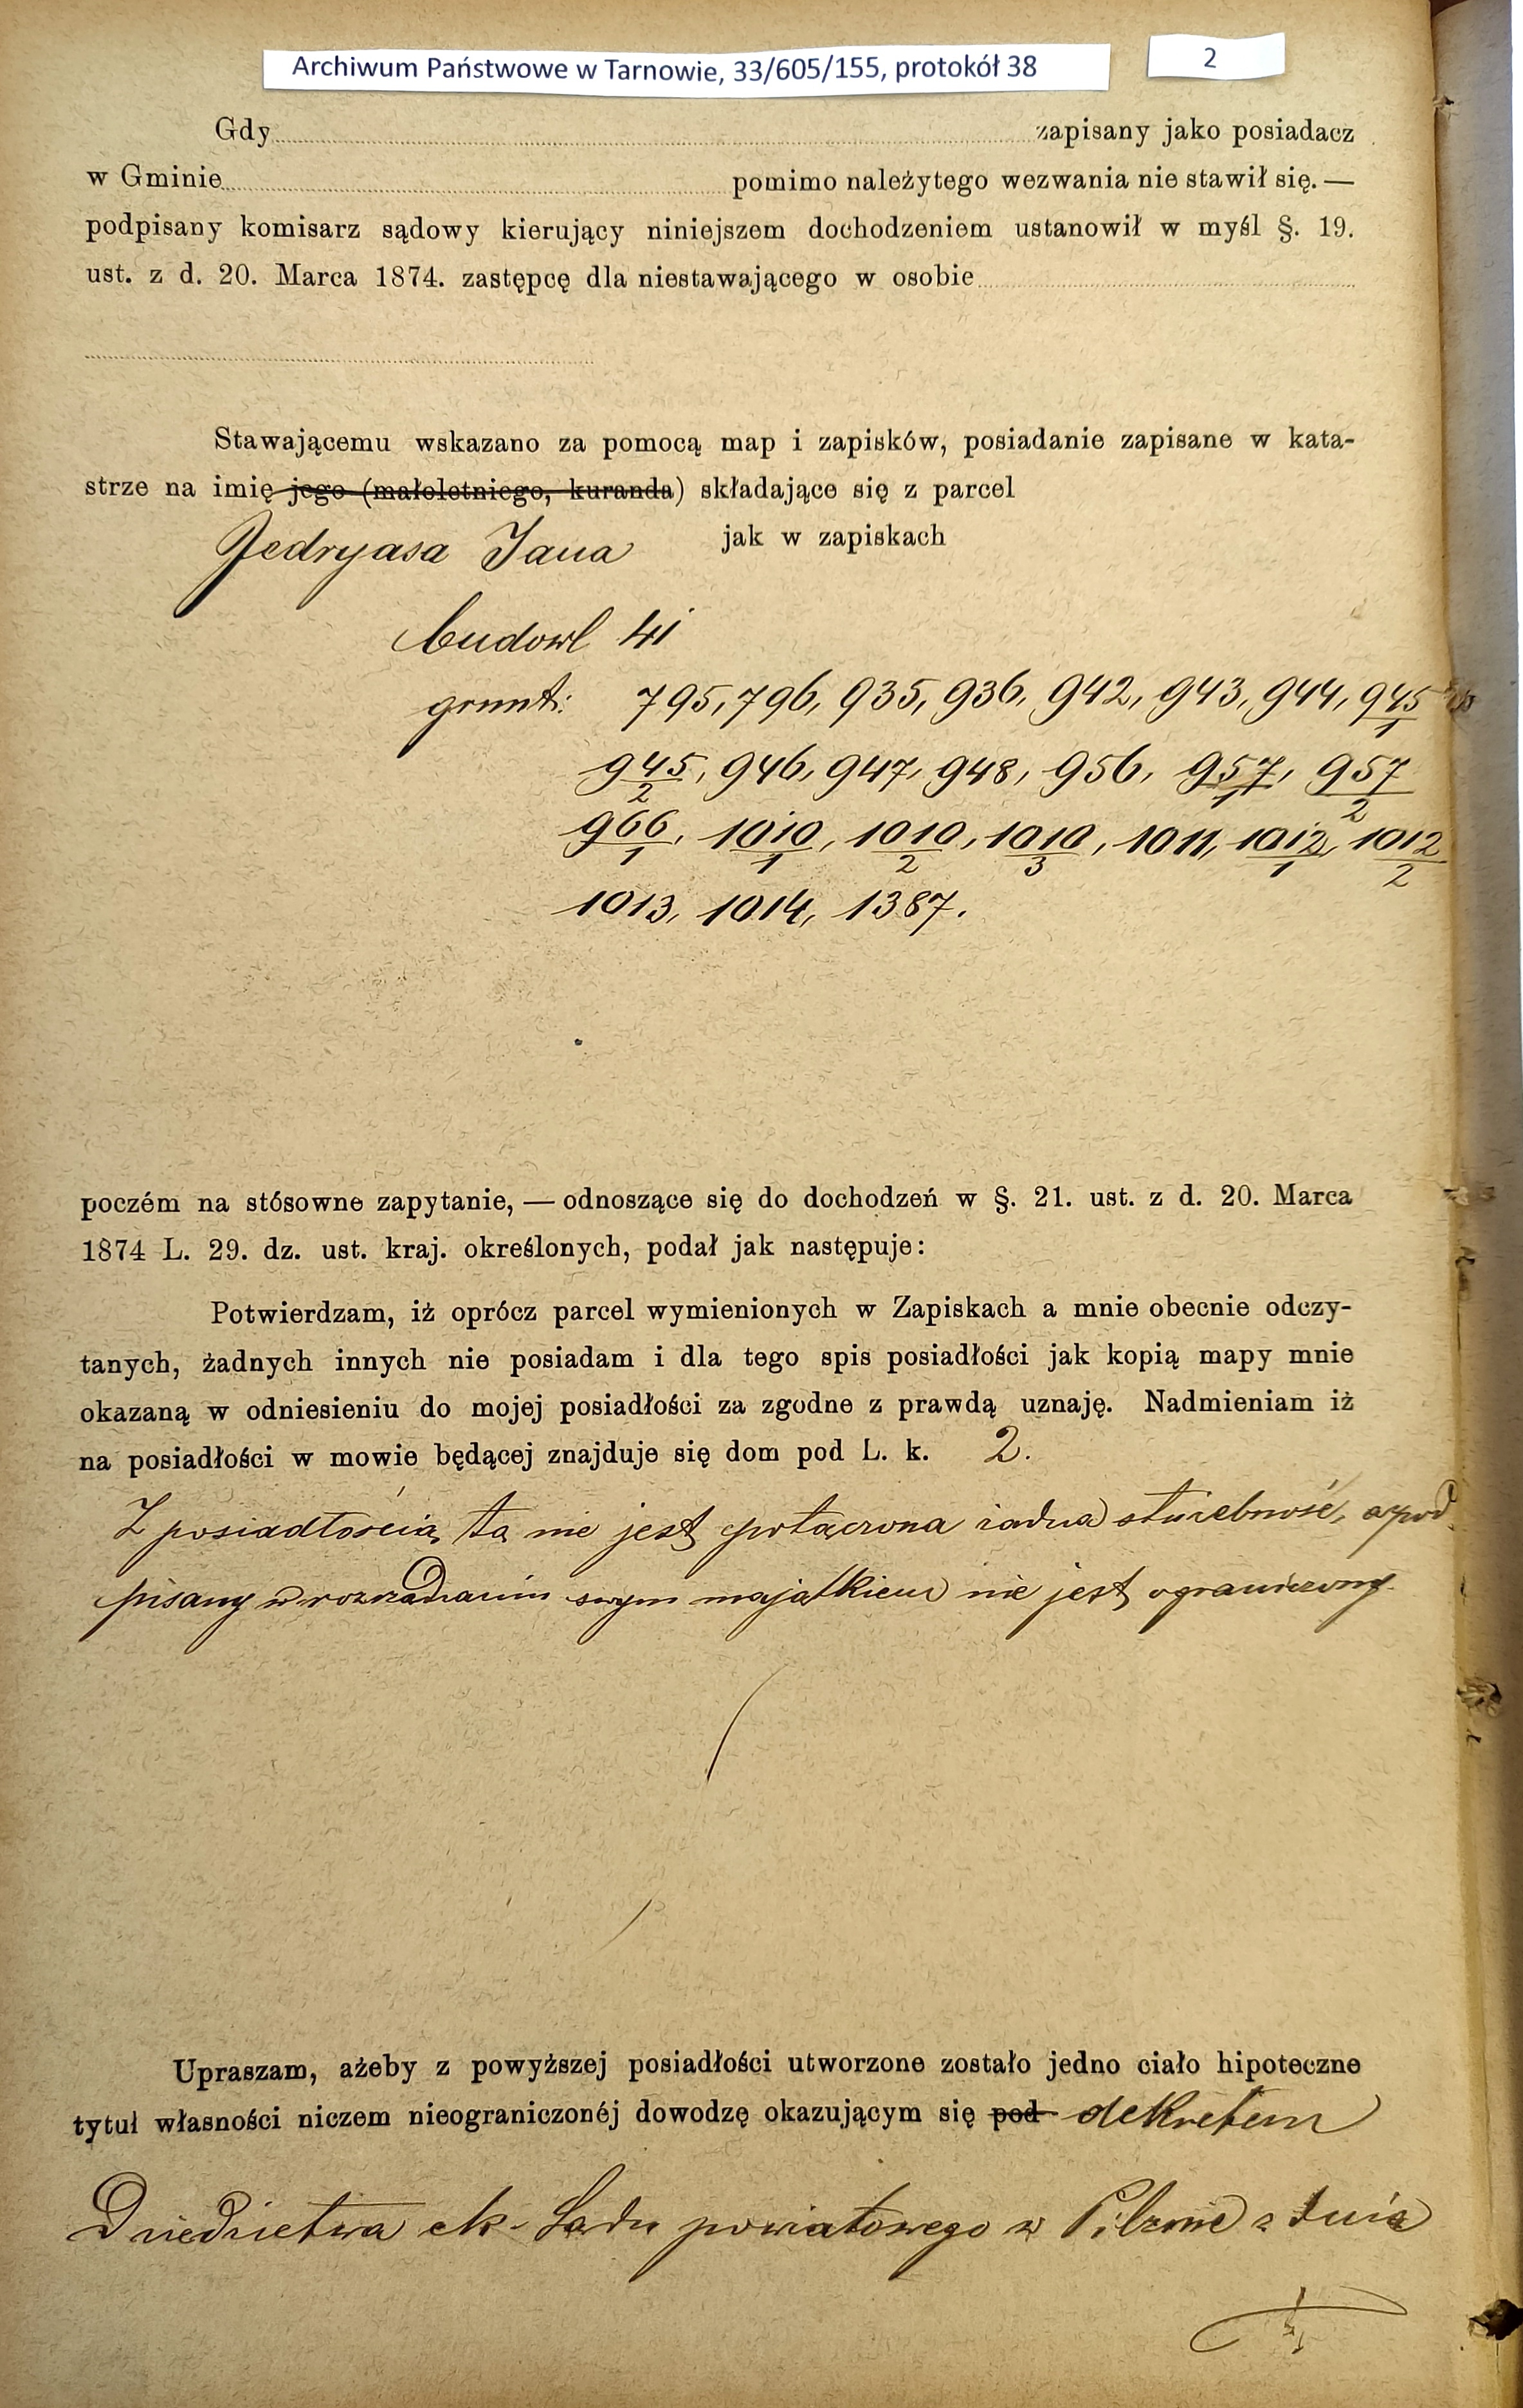 Archiwum Państwowe w Tarnowie, 33/605/155, protokół 38
2
Gdy zapisany jako posiadacz
w Gminie pomimo należytego wezwania nie stawił się. —
podpisany komisarz sądowy kierujący niniejszem dochodzeniem ustanowił w myśl §. 19.
ust. z d. 20. Marca 1874. zastępcę dla niestawającego w osobie
Stawającemu wskazano za pomocą map i zapisków, posiadanie zapisane w kata-
strze na imię jego (małoletniego, kuranda) składające się z parcel
Jedryasa Jana jak w zapiskach
budowl 41
grunt: 795, 796, 935, 936, 942, 943, 944, 945/1
945/2, 946, 947, 948, 956, 957/1, 957/2
966/1, 1010/1, 1010/2, 1010/3, 1011, 1012/1, 1012/2
1013, 1014, 1387.
poczém na stósowne zapytanie, — odnoszące się do dochodzeń w §. 21. ust. z d. 20. Marca
1874 L. 29. dz. ust. kraj. określonych, podał jak następuje:
Potwierdzam, iż oprócz parcel wymienionych w Zapiskach a mnie obecnie odczy-
tanych, żadnych innych nie posiadam i dla tego spis posiadłości jak kopią mapy mnie
okazaną w odniesieniu do mojej posiadłości za zgodne z prawdą uznaję. Nadmieniam iż
na posiadłości w mowie będącej znajduje się dom pod L. k. 2.
Z posiadłością tą nie jest połączona żadna służebność, a pod
pisany w rozrządzaniu swym majątkiem nie jest ograniczony.
Upraszam, ażeby z powyższej posiadłości utworzone zostało jedno ciało hipoteczne
tytuł własności niczem nieograniczonéj dowodzę okazującym się pod dekretem
Dziedzictwa ck. Sądu powiatowego w Pilznie z dnia